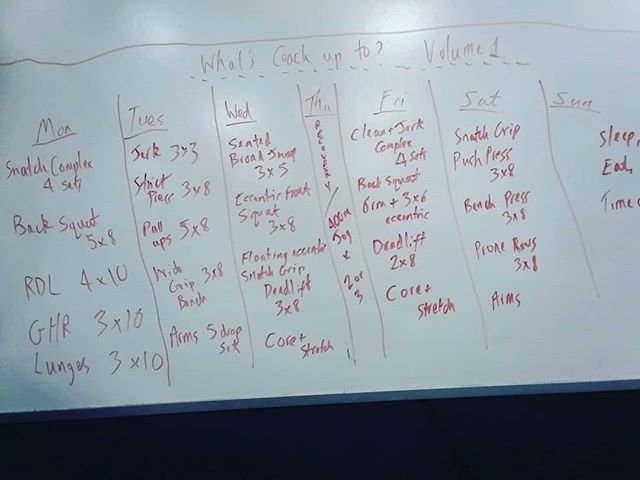 What's Coach up to? Volume 1
Mon
Snatch Complex
4 sets
Back Squat
5x8
RDL 4x10
GHR 3x10
Lunges 3x10
Tues
Jerk 3x3
Strict
Press 3x8
Pull
ups 5x8
Wide
Grip 3x8
Bench
Arms 5 drop
sets
Wed
Seated
Broad Jump
3x5
Eccentric Front
Squat
3x8
Floating eccentric
Snatch Grip
Deadlift
3x8
Core +
Stretch
Thu
RECOVERY
400m
Jog
x
2 or
3
Fri
Clean + Jerk
Complex
4 sets
Back Squat
6rm + 3x6
eccentric
Deadlift
2x8
Core +
stretch
Sat
Snatch Grip
Push Press
3x8
Bench Press
3x8
Prone Rows
3x8
Arms
Sun
Sleep,
Eat,
Time